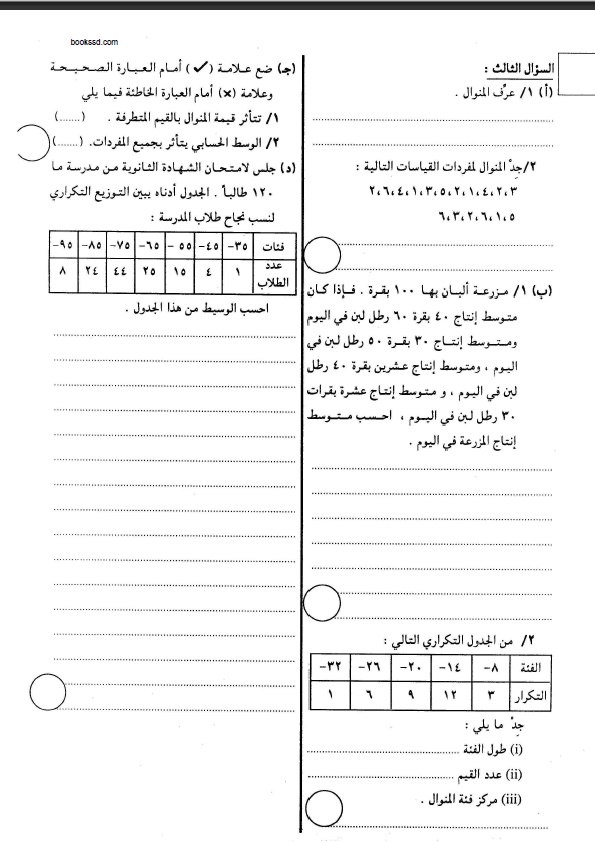 bookssd.com
السؤال الثالث :
(أ) ١/ عرّف المنوال .
٢/جِدْ المنوال لمفردات القياسات التالية :
٢،٦،٤،١،٣،٥،٢،١،٤،٢،٣
٦،٣،٢،٦،١،٥
(ب) ١/ مزرعة ألبان بها ١٠٠ بقرة . فإذا كان
متوسط إنتاج ٤٠ بقرة ٦٠ رطل لبن في اليوم
ومتوسط إنتاج ٣٠ بقرة ٥٠ رطل لبن في
اليوم ، ومتوسط إنتاج عشرين بقرة ٤٠ رطل
لبن في اليوم ، و متوسط إنتاج عشرة بقرات
٣٠ رطل لبن في اليوم ، احسب متوسط
إنتاج المزرعة في اليوم .
٢/ من الجدول التكراري التالي :
الفئة ٨- ١٤- ٢٠- ٢٦- ٣٢-
التكرار ٣ ١٢ ٩ ٦ ١
جِدْ ما يلي :
(i) طول الفئة
(ii) عدد القيم
(iii) مركز فئة المنوال .
(جـ) ضع علامة (✓) أمام العبارة الصحيحة
وعلامة (×) أمام العبارة الخاطئة فيما يلي
١/ تتأثر قيمة المنوال بالقيم المتطرفة . (.......)
٢/ الوسط الحسابي يتأثر بجميع المفردات. (.......)
(د) جلس لامتحان الشهادة الثانوية من مدرسة ما
١٢٠ طالباً . الجدول أدناه يبين التوزيع التكراري
لنسب نجاح طلاب المدرسة :
فئات ٣٥- ٤٥- ٥٥- ٦٥- ٧٥- ٨٥- ٩٥-
عدد الطلاب ١ ٤ ١٥ ٢٥ ٤٤ ٢٤ ٨
احسب الوسيط من هذا الجدول .